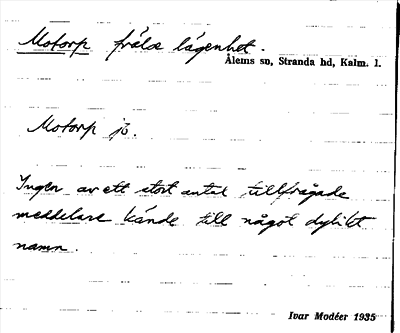 Motorp frälse lägenhet.
Ålems sn, Stranda hd, Kalm. l.
Motorp jb.
Ingen av ett stort antal tillfrågade
meddelare kände till något dylikt
namn.
Ivar Modéer 1935